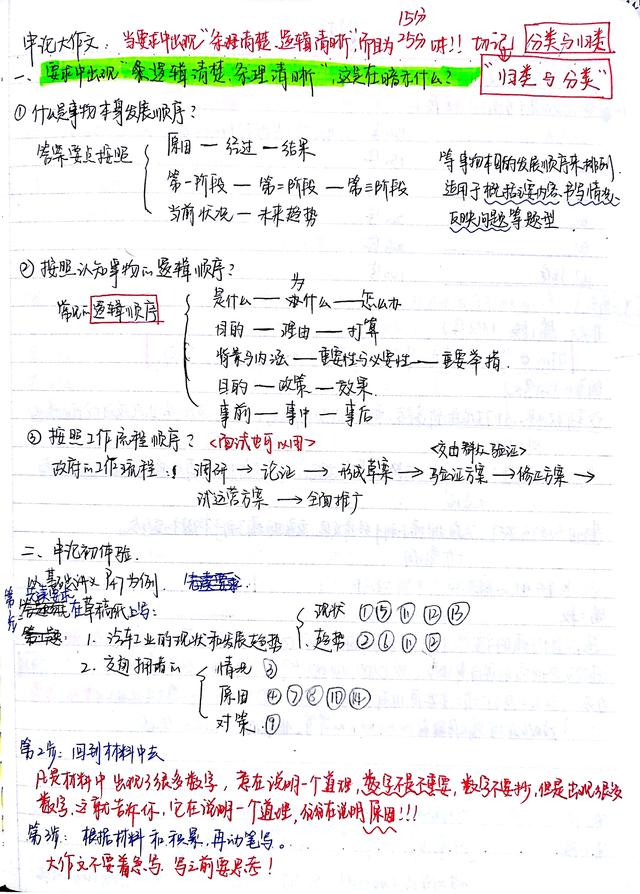 15分
申论大作文：当要求中出现"条理清楚、逻辑清晰",而且为25分时!! 切记 分类与归类
一、要求中出现"条逻辑清楚,条理清晰",这是在暗示什么? "归类与分类"
① 什么是事物本身发展顺序?
答案要点按照
原因 — 经过 — 结果
第一阶段 — 第二阶段 — 第三阶段
当前状况 — 未来趋势
等事物本身的发展顺序来排列.
适用于概括主要内容、书写情况、
反映问题等题型.
② 按照认知事物的逻辑顺序?
常见的逻辑顺序
为
是什么 — 什么 — 怎么办
目的 — 理由 — 打算
背景与内涵 — 重要性与必要性 — 重要举措.
目的 — 政策 — 效果.
事前 — 事中 — 事后
③ 按照工作流程顺序? <面试也可以用>
<交由群众验证>
政府的工作流程: 调研 → 论证 → 形成草案 → 验证方案 → 修正方案 →
试运营方案 → 全面推广
二、申论初体验.
以基础讲义 为例. 先读要求
第1步: 在草稿纸上写:
1. 汽车工业的现状和发展趋势
现状 ① ⑤ ⑪ ⑫ ⑬
趋势 ② ⑥ ⑪ ⑫
2. 交通拥堵的
情况 ③
原因 ④ ⑦ ⑧ ⑩ ⑭
对策 ⑨
第2步: 回到材料中去
凡是材料中出现了很多数字, 意在说明一个道理, 数字不是不重要, 数字不要抄, 但是出现很多
数字, 这就告诉你, 它在说明一个道理, 往往在说明原因!!!
第3步: 根据材料和积累, 再动笔写。
大作文不要着急写. 写之前要思考!